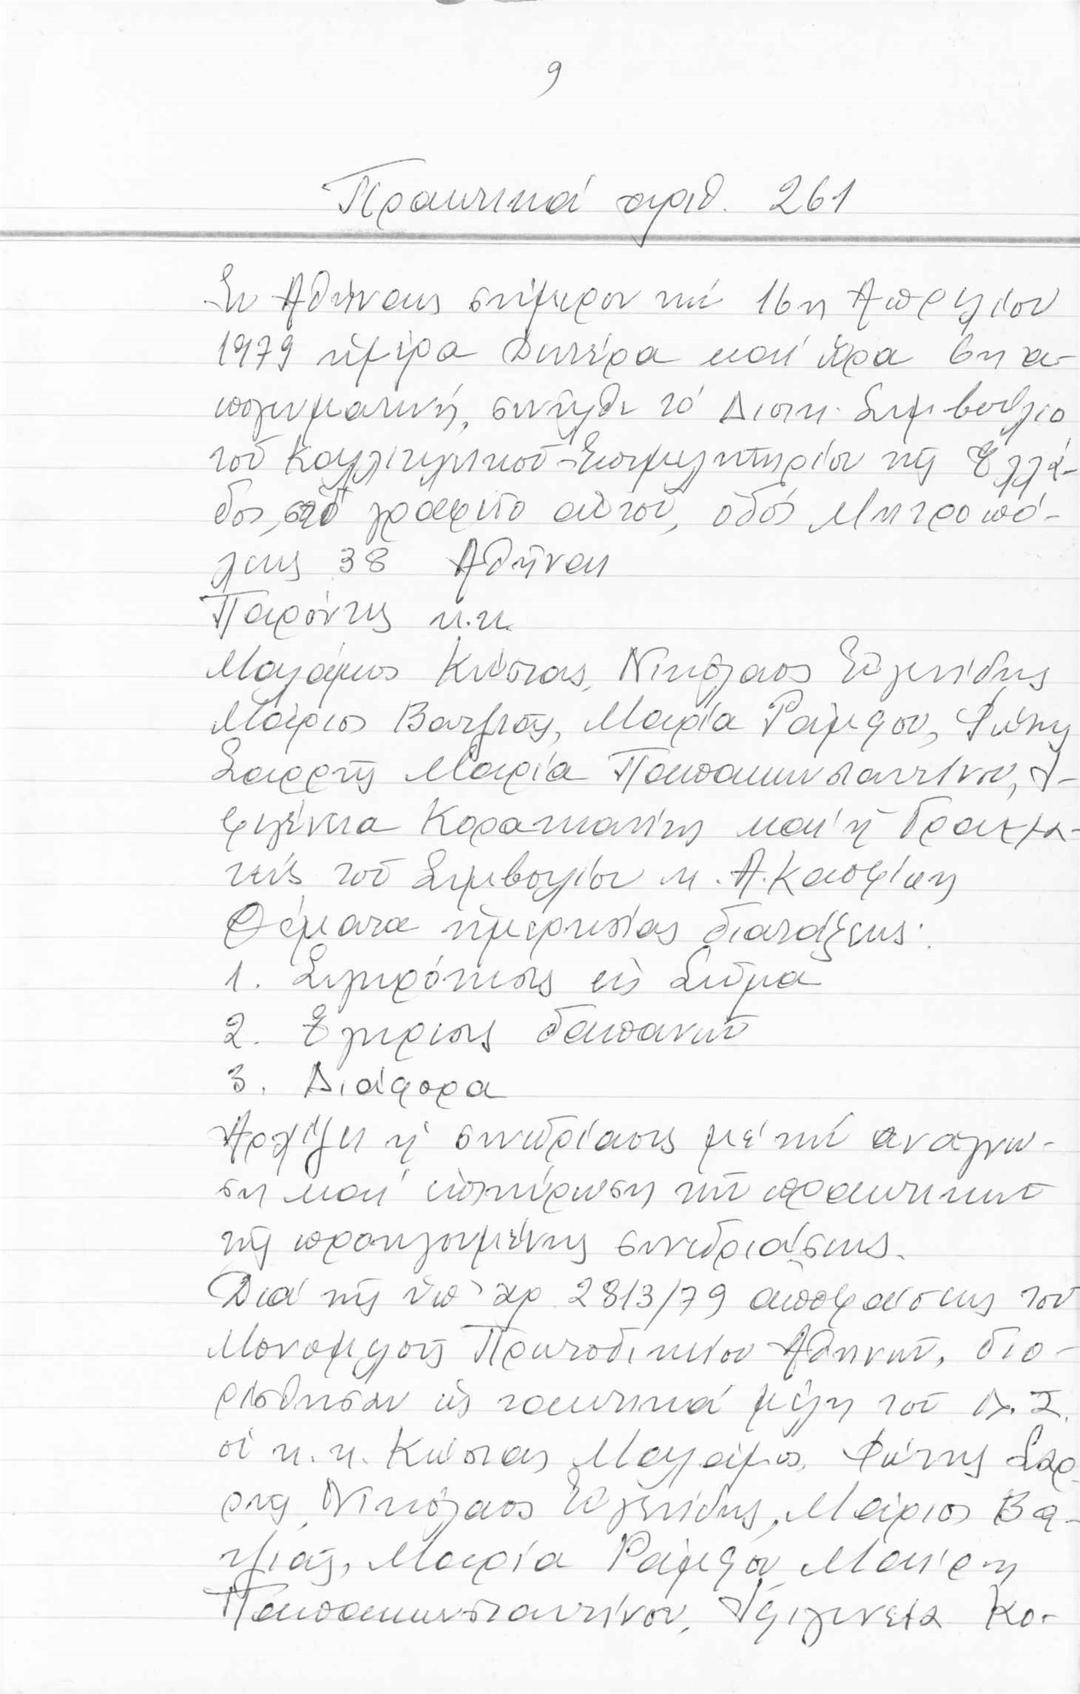 9
Πρακτικά αριθ. 261
Ἐν Ἀθήναις σήμερον τήν 16η Ἀπριλίου
1979 ἡμέρα Δευτέρα καί ὥρα 6η ἀ-
πογευματινή, συνῆλθε τό Διοικ. Συμβούλιο
τοῦ Καλλιτεχνικοῦ Ἐπιμελητηρίου τῆς Ἑλλά-
δος, στό γραφεῖο αὐτοῦ, ὁδός Μητροπό-
λεως 38 Ἀθῆναι
Παρόντες κ.κ.
Μαλάμος Κώστας, Νικόλαος Εὐγενίδης
Μάριος Βατζιᾶς, Μαρία Ράμφου, Φώτης
Σαρρῆς Μαρία Παπακωνσταντίνου, Ἰ-
φιγένεια καί ἡ Γραμμα-
τεύς τοῦ Συμβουλίου κ. Α.
Θέματα ἡμερησίας διατάξεως:
1. Συγκρότησις εἰς Σῶμα
2. Ἔγκρισις δαπανῶν
3. Διάφορα
Ἀρχίζει ἡ συνεδρίασις μέ τήν ἀνάγνω-
ση καί ἐπικύρωση τῶν πρακτικῶν
τῆς προηγουμένης συνεδριάσεως.
Διά τῆς ὑπ' ἀρ 2813/79 ἀποφάσεως τοῦ
Μονομελοῦς Πρωτοδικείου Ἀθηνῶν, διο-
ρίσθησαν ὡς τακτικά μέλη τοῦ Δ.Σ.
οἱ κ.κ. Κώστας Μαλάμος, Φώτης Σαρ-
ρῆς, Νικόλαος Εὐγενίδης, Μάριος Βα-
τζιᾶς, Μαρία Ράμφου Μαίρη
Παπακωνσταντίνου, Ἰφιγένεια Κο-